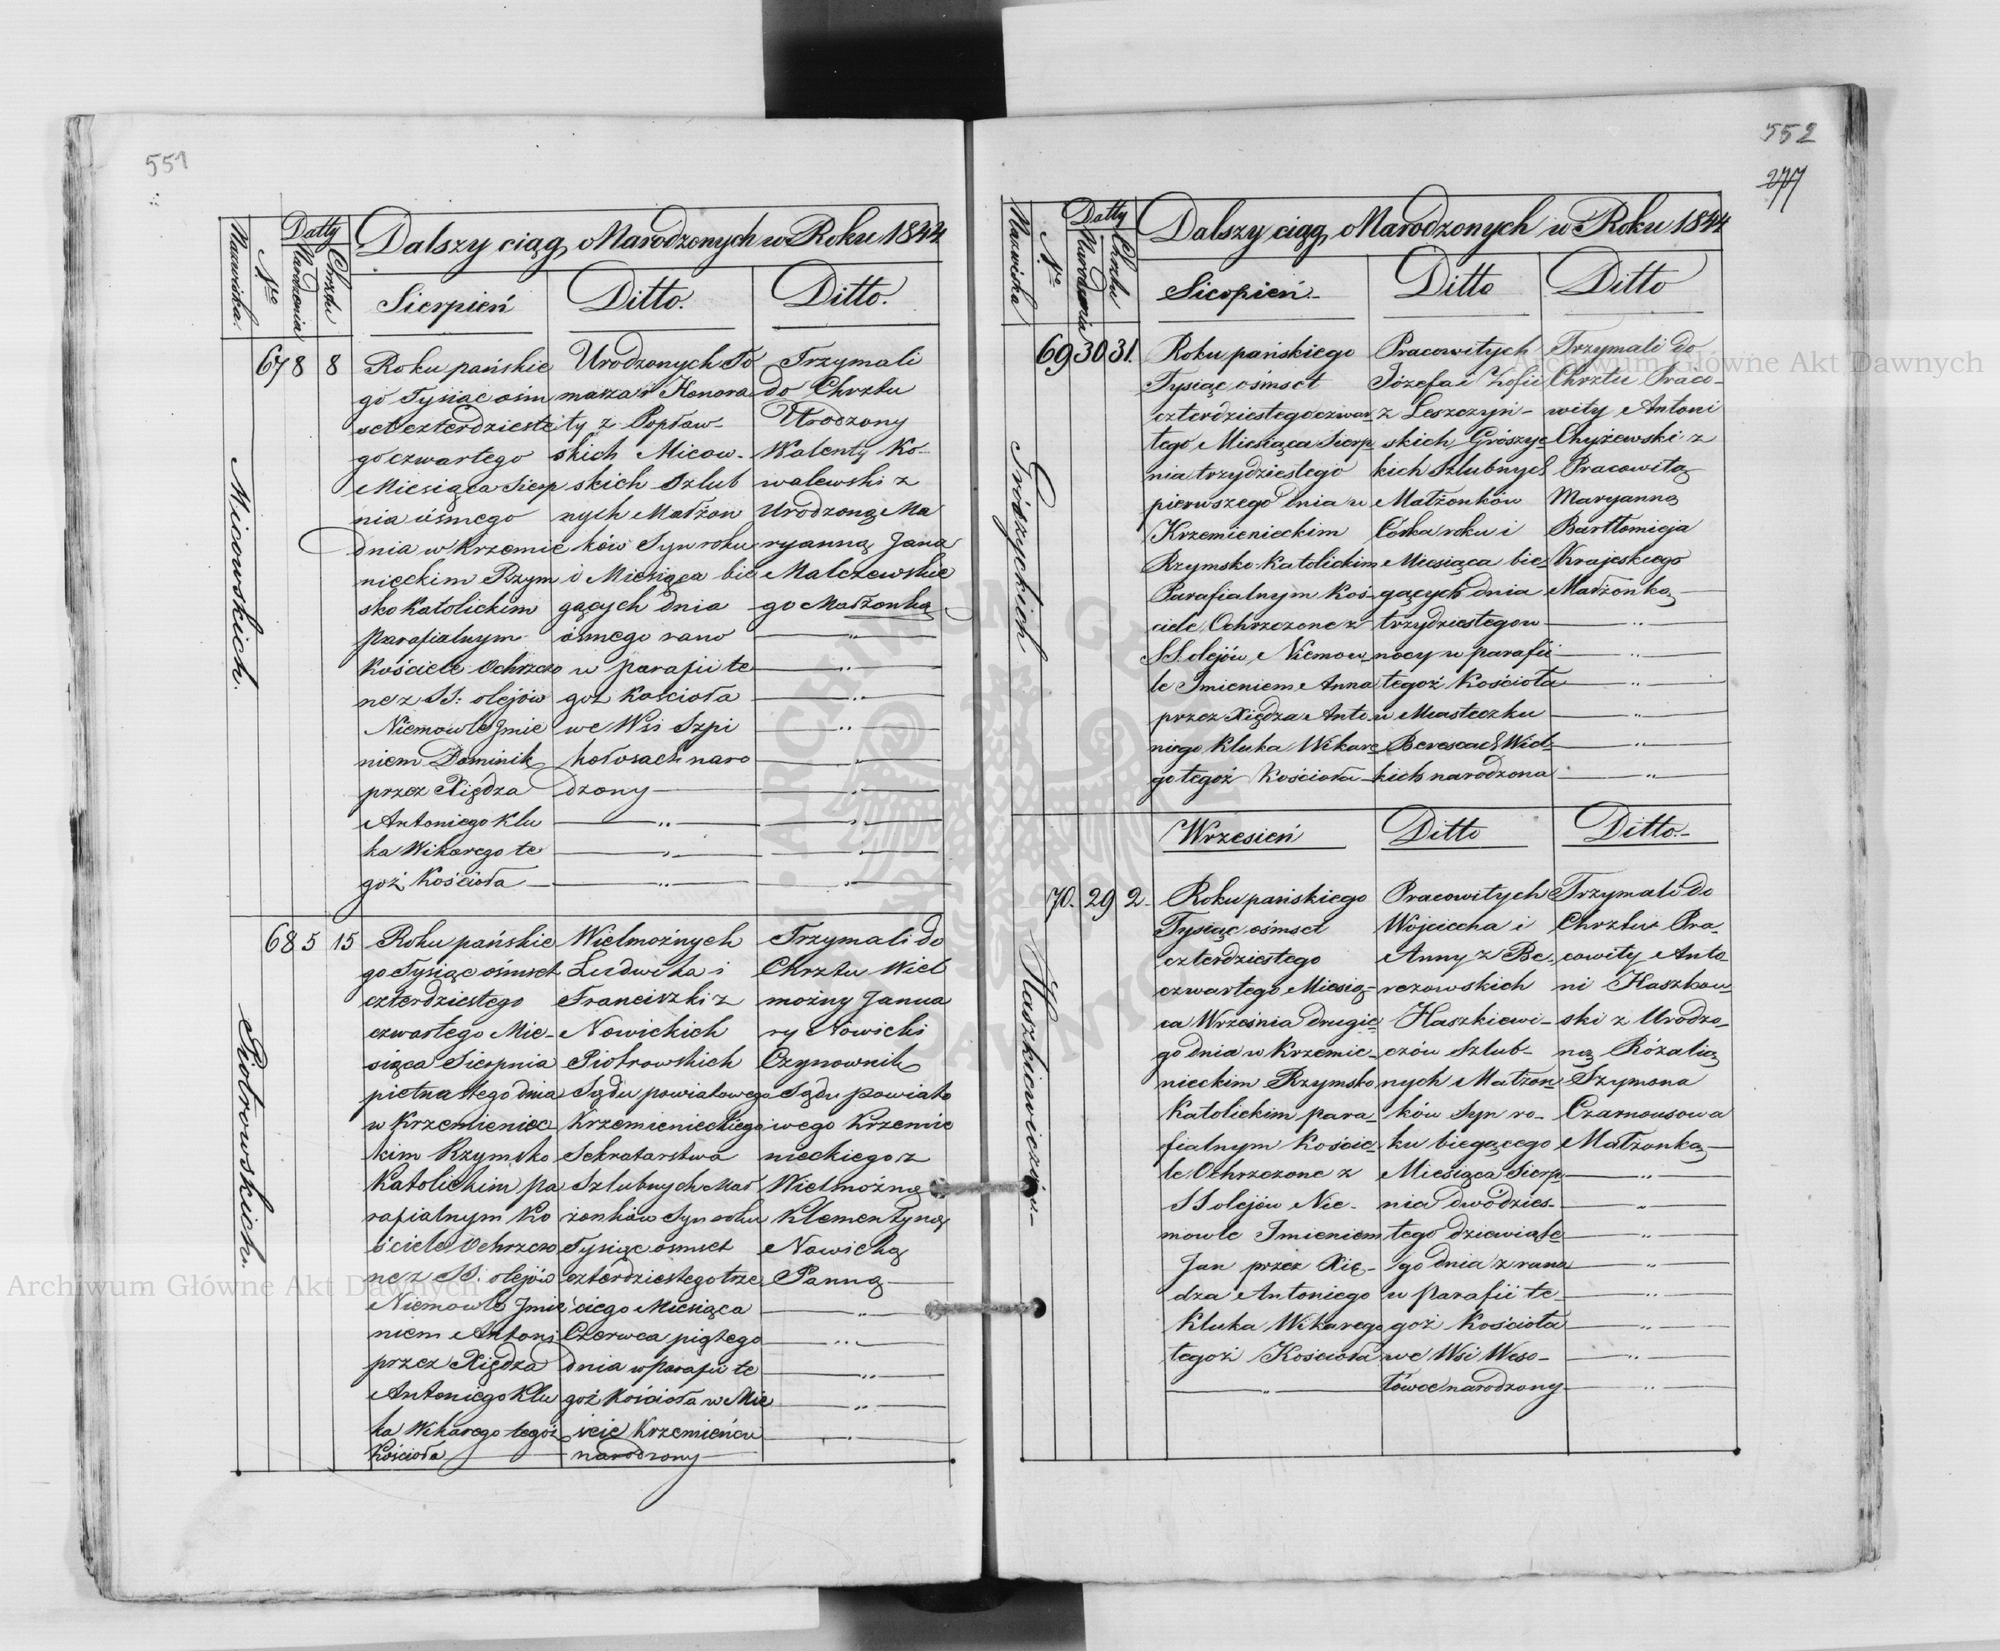 551
Dalszy ciąg Narodzonych w Roku 1844
Nazwiska.
Nro
Datty
Narodzenia
Chrztu
Sierpień
Ditto.
Ditto.
Micowskich.
67 8 8
Roku pańskie
go Tysiąc ośm
set czterdzieste
go czwartego
Miesiąca Sierp
nia ósmego
dnia w Krzemie
nieckim Rzym
sko Katolickim
Parafialnym
Kościele Ochrzczo
ne z SS: olejów
Niemowle Jmie
niem Dominik
przez Xiędza
Antoniego Klu
ka Wikarego te
goż Kościoła
Urodzonych To
masza i Honora
ty z Popław-
skich Micow-
skich Szlub
nych Małżon
ków Syn roku
i Miesiąca bie
gących dnia
ósmego rano
w parafii te
goż Kościoła
we Wsi Szpi
kołosach naro
dzony
Trzymali
do Chrztu
Urodzony
Walenty Ko-
walewski z
Urodzoną Ma
ryanną Jana
Malczewskie
go Małżonką
Piotrowskich.
68 5 15
Roku pańskie
go Tysiąc ośmset
czterdziestego
czwartego Mie-
siąca Sierpnia
pietnastego dnia
w Krzemieniec
kim Rzymsko
Katolickim pa
rafialnym Ko
ściele Ochrzczo
ne z SS: olejów
Niemowle Jmie
niem Antoni
przez Xiędza
Antoniego Klu
ka Wikarego tegoż
Kościoła
Wielmożnych
Ludwika i
Franciszki z
Nowickich
Piotrowskich
Sądu powiatowego
Krzemienieckiego
Sekretarstwa
Szlubnych Mał
żonków Syn roku
Tysiąc ośmset
czterdziestego trze
ciego Miesiąca
Czerwca piątego
dnia w Parafii te
goż Kościoła w Mie
ście Krzemieńcu
narodzony
Trzymali do
Chrztu Wiel
możny Janua
ry Nowicki
Czynownik
Sądu powiato
wego Krzemie
nieckiego z
Wielmożną
Klementyną
Nowicką
Panną
552
277
Dalszy ciąg Narodzonych w Roku 1844
Nazwiska
Nro
Datty
Narodzenia
Chrztu
Sierpień.
Ditto
Ditto
Grószyckich
69 30 31.
Roku pańskiego
Tysiąc ośmset
czterdziestego czwar
tego Miesiąca Sierp
nia trzydziestego
pierwszego dnia w
Krzemienieckim
Rzymsko-Katolickim
Parafialnym Koś-
ciele Ochrzczone z
SS. olejów Niemow-
le Imieniem Anna
przez Xiędza Anto-
niego Kluka Wikare
go tegoż Kościoła
Pracowitych
Józefa i Zofii
z Leszczyń-
skich Grószyc
kich Szlubnych
Małżonków
Córka roku i
Miesiąca bie
gących dnia
trzydziestego w
nocy w parafii
tegoż Kościoła
w Miasteczku
Berescach Wiel-
kich narodzona
Trzymali do
Chrztu Praco-
wity Antoni
Chyżewski z
Pracowitą
Maryanną
Bartłomieja
Krajeskiego
Małżonką
Wrzesień
Ditto
Ditto-
Haszkiewiczów-
70. 29 2-
Roku pańskiego
Tysiąc ośmset
czterdziestego
czwartego Miesią-
ca Września drugie
go dnia w Krzemie-
nieckim Rzymsko
Katolickim para-
fialnym Koście-
le Ochrzczone z
SS olejów Nie-
mowle Imieniem
Jan przez Xię-
dza Antoniego
Kluka Wikarego
tegoż Kościoła
Pracowitych
Wojciecha i
Anny z Be-
rezowskich
Haszkiewi-
czów Szlub-
nych Małżon
ków Syn ro-
ku biegącego
Miesiąca Sierp
nia dwódzies-
tego dziewiąte
go dnia z rana
w parafii te-
goż Kościoła
we Wsi Weso-
łówce narodzony
Trzymali do
Chrztu Pra-
cowity Anto-
ni Haszkow-
ski z Urodzo-
ną Rózalią
Szymona
Czarnousowa
Małżonką
Archiwum Główne Akt Dawnych
Archiwum Główne Akt Dawnych